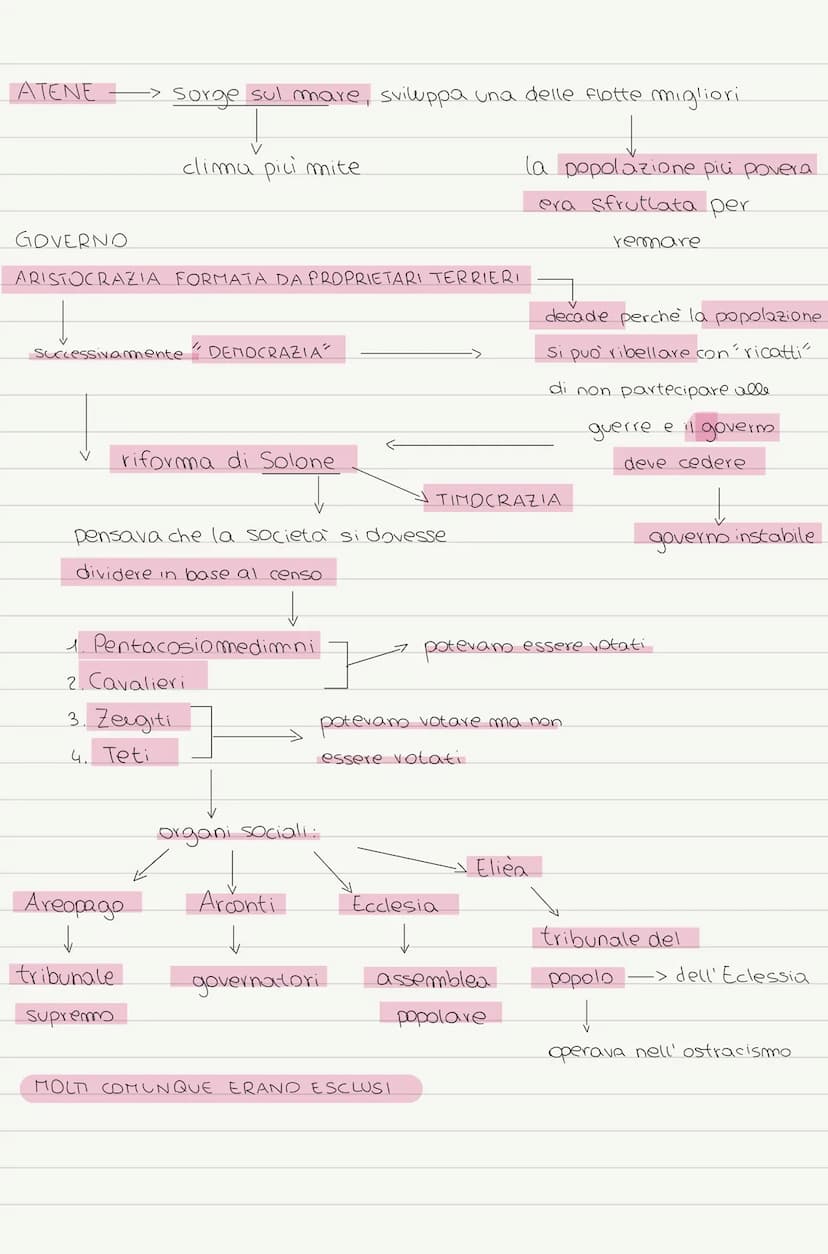 ATENE → sorge sul mare, sviluppa una delle flotte migliori
clima più mite
la popolazione più povera
era sfruttata per
remare
GOVERNO
ARISTOCRAZIA FORMATA DA PROPRIETARI TERRIERI
decade perchè la popolazione
successivamente "DEMOCRAZIA" → si può ribellare con "ricatti"
di non partecipare alle
guerre e il governo
riforma di Solone
deve cedere
TIMOCRAZIA
pensava che la società si dovesse
governo instabile
dividere in base al censo
1. Pentacosiomedimni
potevano essere votati
2. Cavalieri
3. Zeugiti
potevano votare ma non
4. Teti
essere votati
organi sociali:
Elièa
Areopago Arconti Ecclesia
tribunale del
tribunale governatori assemblea popolo → dell'Eclessia
supremo popolare
operava nell'ostracismo
MOLTI COMUNQUE ERANO ESCLUSI